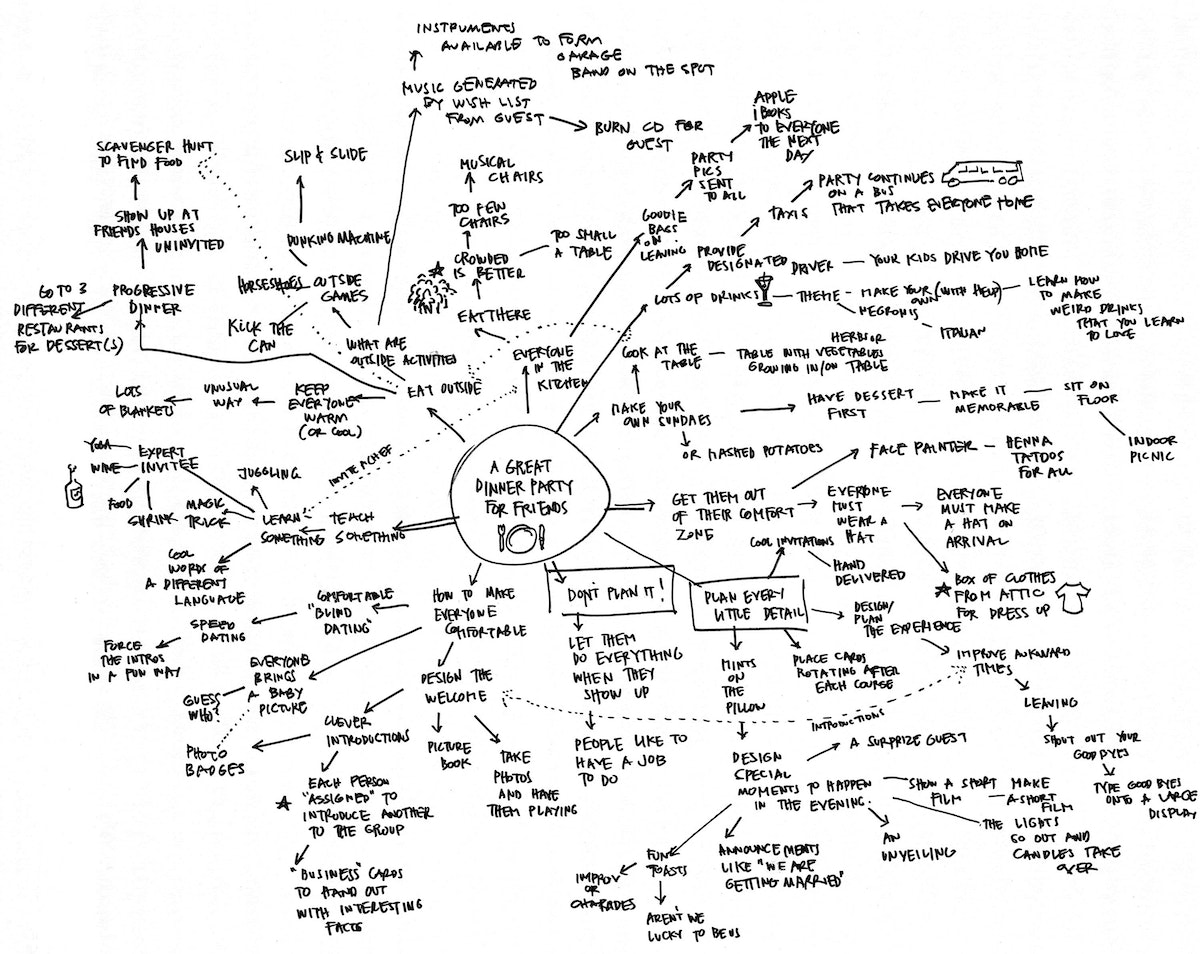 INSTRUMENTS
AVAILABLE TO FORM
GARAGE
BAND ON THE SPOT
MUSIC GENERATED
BY WISH LIST
FROM GUEST
BURN CD FOR
GUEST
SCAVENGER HUNT
TO FIND FOOD
SLIP & SLIDE
SHOW UP AT
FRIENDS HOUSES
UNINVITED
DUNKING MACHINE
GO TO 3
DIFFERENT
RESTAURANTS
FOR DESSERT(S)
PROGRESSIVE
DINNER
HORSESHOES
OUTSIDE
GAMES
KICK THE
CAN
WHAT ARE
OUTSIDE ACTIVITIES
EAT OUTSIDE
MUSICAL
CHAIRS
TOO FEW
CHAIRS
CROWDED
IS BETTER
TOO SMALL
A TABLE
EAT THERE
EVERYONE
IN THE
KITCHEN
APPLE
iBOOKS
TO EVERYONE
THE NEXT
DAY
PARTY
PICS
SENT
TO ALL
GOODIE
BAGS
ON
LEAVING
PARTY CONTINUES
ON A BUS
THAT TAKES EVERYONE HOME
TAXIS
PROVIDE
DESIGNATED
DRIVER
YOUR KIDS DRIVE YOU HOME
LOTS OF DRINKS
THEME
MAKE YOUR
OWN (WITH HELP)
NEGRONIS
ITALIAN
LEARN HOW
TO MAKE
WEIRD DRINKS
THAT YOU LEARN
TO LOVE
COOK AT THE
TABLE
HERBS OR
TABLE WITH VEGETABLES
GROWING IN/ON TABLE
MAKE YOUR
OWN SUNDAES
OR MASHED POTATOES
HAVE DESSERT
FIRST
MAKE IT
MEMORABLE
SIT ON
FLOOR
INDOOR
PICNIC
LOTS
OF BLANKETS
UNUSUAL
WAY
KEEP
EVERYONE
WARM
(OR COOL)
YOGA
WINE
FOOD
SHRINK
EXPERT
INVITEE
JUGGLING
MAGIC
TRICK
INVITE A CHEF
LEARN
SOMETHING
TEACH
SOMETHING
COOL
WORDS OF
A DIFFERENT
LANGUAGE
A GREAT
DINNER PARTY
FOR FRIENDS
GET THEM OUT
OF THEIR COMFORT
ZONE
FACE PAINTER
HENNA
TATOOS
FOR ALL
EVERYONE
MUST
WEAR A
HAT
EVERYONE
MUST MAKE
A HAT ON
ARRIVAL
BOX OF CLOTHES
FROM ATTIC
FOR DRESS UP
HOW TO MAKE
EVERYONE
COMFORTABLE
COMFORTABLE
"BLIND
DATING"
SPEED
DATING
FORCE
THE INTROS
IN A FUN WAY
EVERYONE
BRINGS
A BABY
PICTURE
GUESS
WHO?
PHOTO
BADGES
DESIGN THE
WELCOME
CLEVER
INTRODUCTIONS
PICTURE
BOOK
TAKE
PHOTOS
AND HAVE
THEM PLAYING
EACH PERSON
"ASSIGNED" TO
INTRODUCE ANOTHER
TO THE GROUP
"BUSINESS" CARDS
TO HAND OUT
WITH INTERESTING
FACTS
DON'T PLAN IT!
LET THEM
DO EVERYTHING
WHEN THEY
SHOW UP
PEOPLE LIKE TO
HAVE A JOB
TO DO
PLAN EVERY
LITTLE DETAIL
COOL INVITATIONS
HAND
DELIVERED
DESIGN/
PLAN
THE EXPERIENCE
PLACE CARDS
ROTATING AFTER
EACH COURSE
MINTS
ON
THE
PILLOW
IMPROVE AWKWARD
TIMES
INTRODUCTIONS
LEAVING
SHOUT OUT YOUR
GOODBYES
TYPE GOOD BYES
ONTO A LARGE
DISPLAY
DESIGN
SPECIAL
MOMENTS TO HAPPEN
IN THE EVENING.
A SURPRIZE GUEST
SHOW A SHORT
FILM
MAKE
A SHORT
FILM
THE LIGHTS
GO OUT AND
CANDLES TAKE
OVER
AN
UNVEILING
ANNOUNCEMENTS
LIKE "WE ARE
GETTING MARRIED"
FUN
TOASTS
IMPROV
OR
CHARADES
AREN'T WE
LUCKY TO BE US